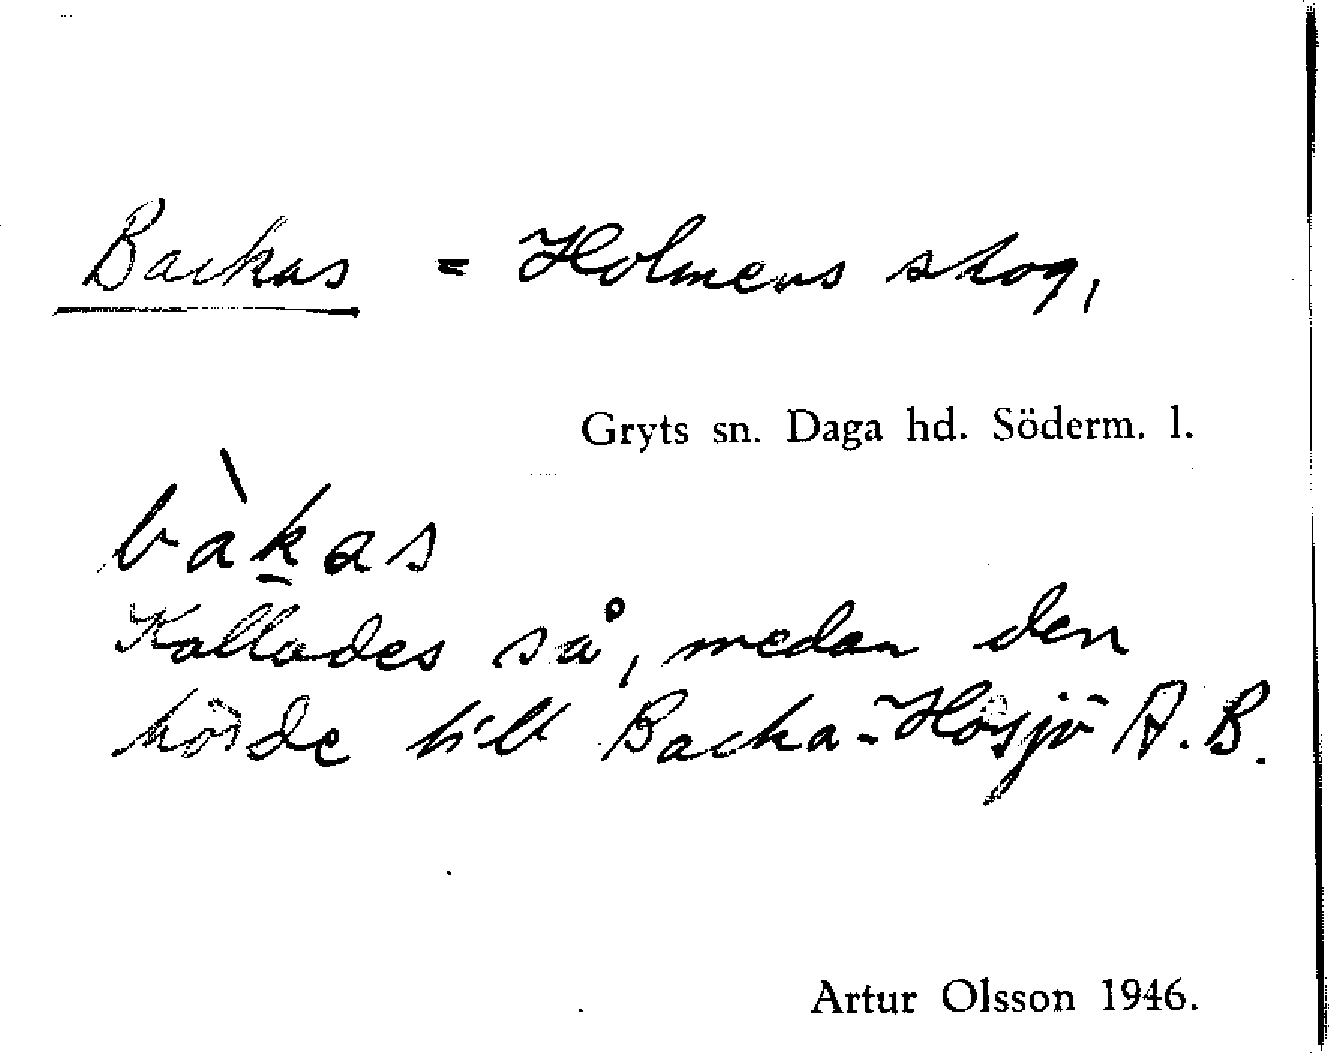 Backas = Holmens skog,
Gryts sn. Daga hd. Söderm. l.
bàk̲as
Kallades så, medan den
hörde till Backa-Hosjö A.B.
Artur Olsson 1946.